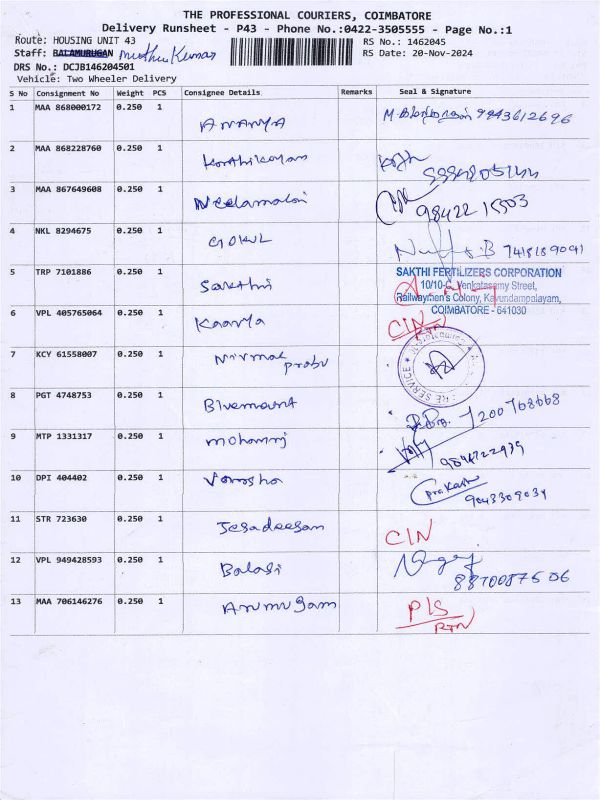 THE PROFESSIONAL COURIERS, COIMBATORE
Delivery Runsheet - P43 - Phone No.:0422-3505555 - Page No.:1
Route: HOUSING UNIT 43 RS No.: 1462045
Staff: BALAMURUGAN Muthu Kumar RS Date: 20-Nov-2024
DRS No.: DCJB146204501
Vehicle: Two Wheeler Delivery
S No Consignment No Weight PCS Consignee Details Remarks Seal & Signature
1 MAA 868000172 0.250 1 Ananya 9943612696
2 MAA 868228760 0.250 1 Karthikeyan
3 MAA 867649608 0.250 1 Neelamalai
4 NKL 8294675 0.250 1 GOKUL 7418189091
5 TRP 7101886 0.250 1 Sakthi SAKTHI FERTILIZERS CORPORATION
10/10-C, Venkatasamy Street,
Railwaymen's Colony, Kavundampalayam,
COIMBATORE - 641030
6 VPL 405765064 0.250 1 Kaavya CIN
RTN
7 KCY 61558007 0.250 1 Nirmal
prabu
8 PGT 4748753 0.250 1 Bluemount 7200768668
9 MTP 1331317 0.250 1 mohanraj
10 DPI 404402 0.250 1 Prakash
9043309034
11 STR 723630 0.250 1 Jegadeesan CIN
12 VPL 949428593 0.250 1 Balaji
13 MAA 706146276 0.250 1 Arumugam P/S
RTN